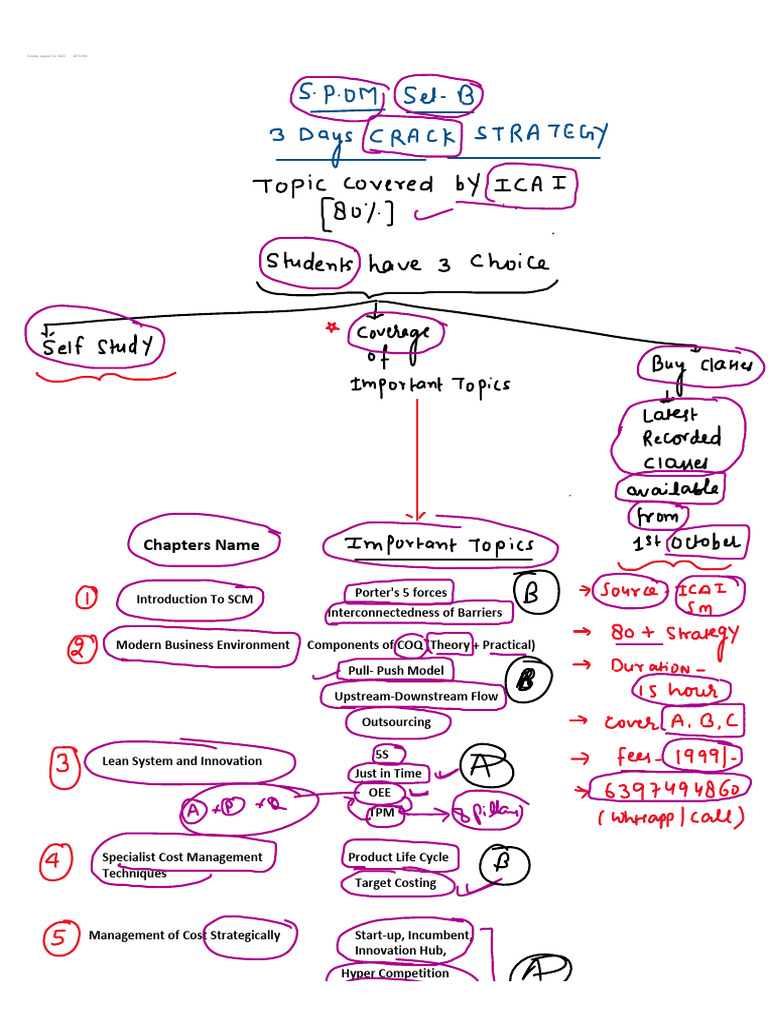 S.P.OM Set-B
3 Days CRACK STRATEGY
Topic covered by ICAI
[80%]
Students have 3 Choice
Self Study
Coverage
of
Important Topics
Buy Classes
Latest
Recorded
Classes
available
from
1st October
Chapters Name
Important Topics
1
Introduction To SCM
Porter's 5 forces
Interconnectedness of Barriers
B
2
Modern Business Environment
Components of COQ (Theory + Practical)
Pull- Push Model
Upstream-Downstream Flow
Outsourcing
B
3
Lean System and Innovation
5S
Just in Time
OEE
TPM
A
A + P + Q
8 pillars
4
Specialist Cost Management
Techniques
Product Life Cycle
Target Costing
B
5
Management of Cost Strategically
Start-up, Incumbent,
Innovation Hub,
Hyper Competition
A
Source - ICAI
SM
80 + Strategy
Duration -
15 hour
cover A, B, C
fees - 1999/-
6397494860
(Whatsapp / Call)